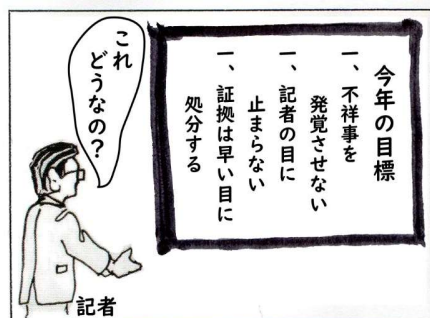 今年の目標
一、不祥事を
発覚させない
一、記者の目に
止まらない
一、証拠は早い目に
処分する
これ
どうなの？
記者